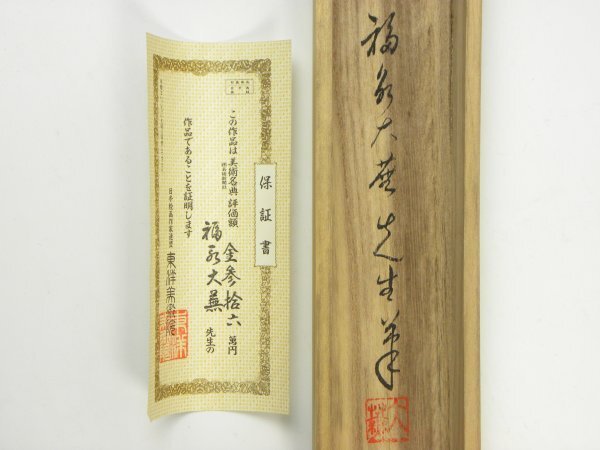 保証書
この作品は美術名典評価額
金参拾六萬円
福永大蕪先生の
作品であることを証明します
福永大蕪先生筆